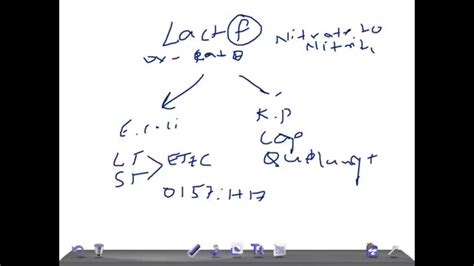 Lact f Nitrate to
Nitrite
ox-
E. coli K.p
LT ETEC Cap
ST
O157:H7